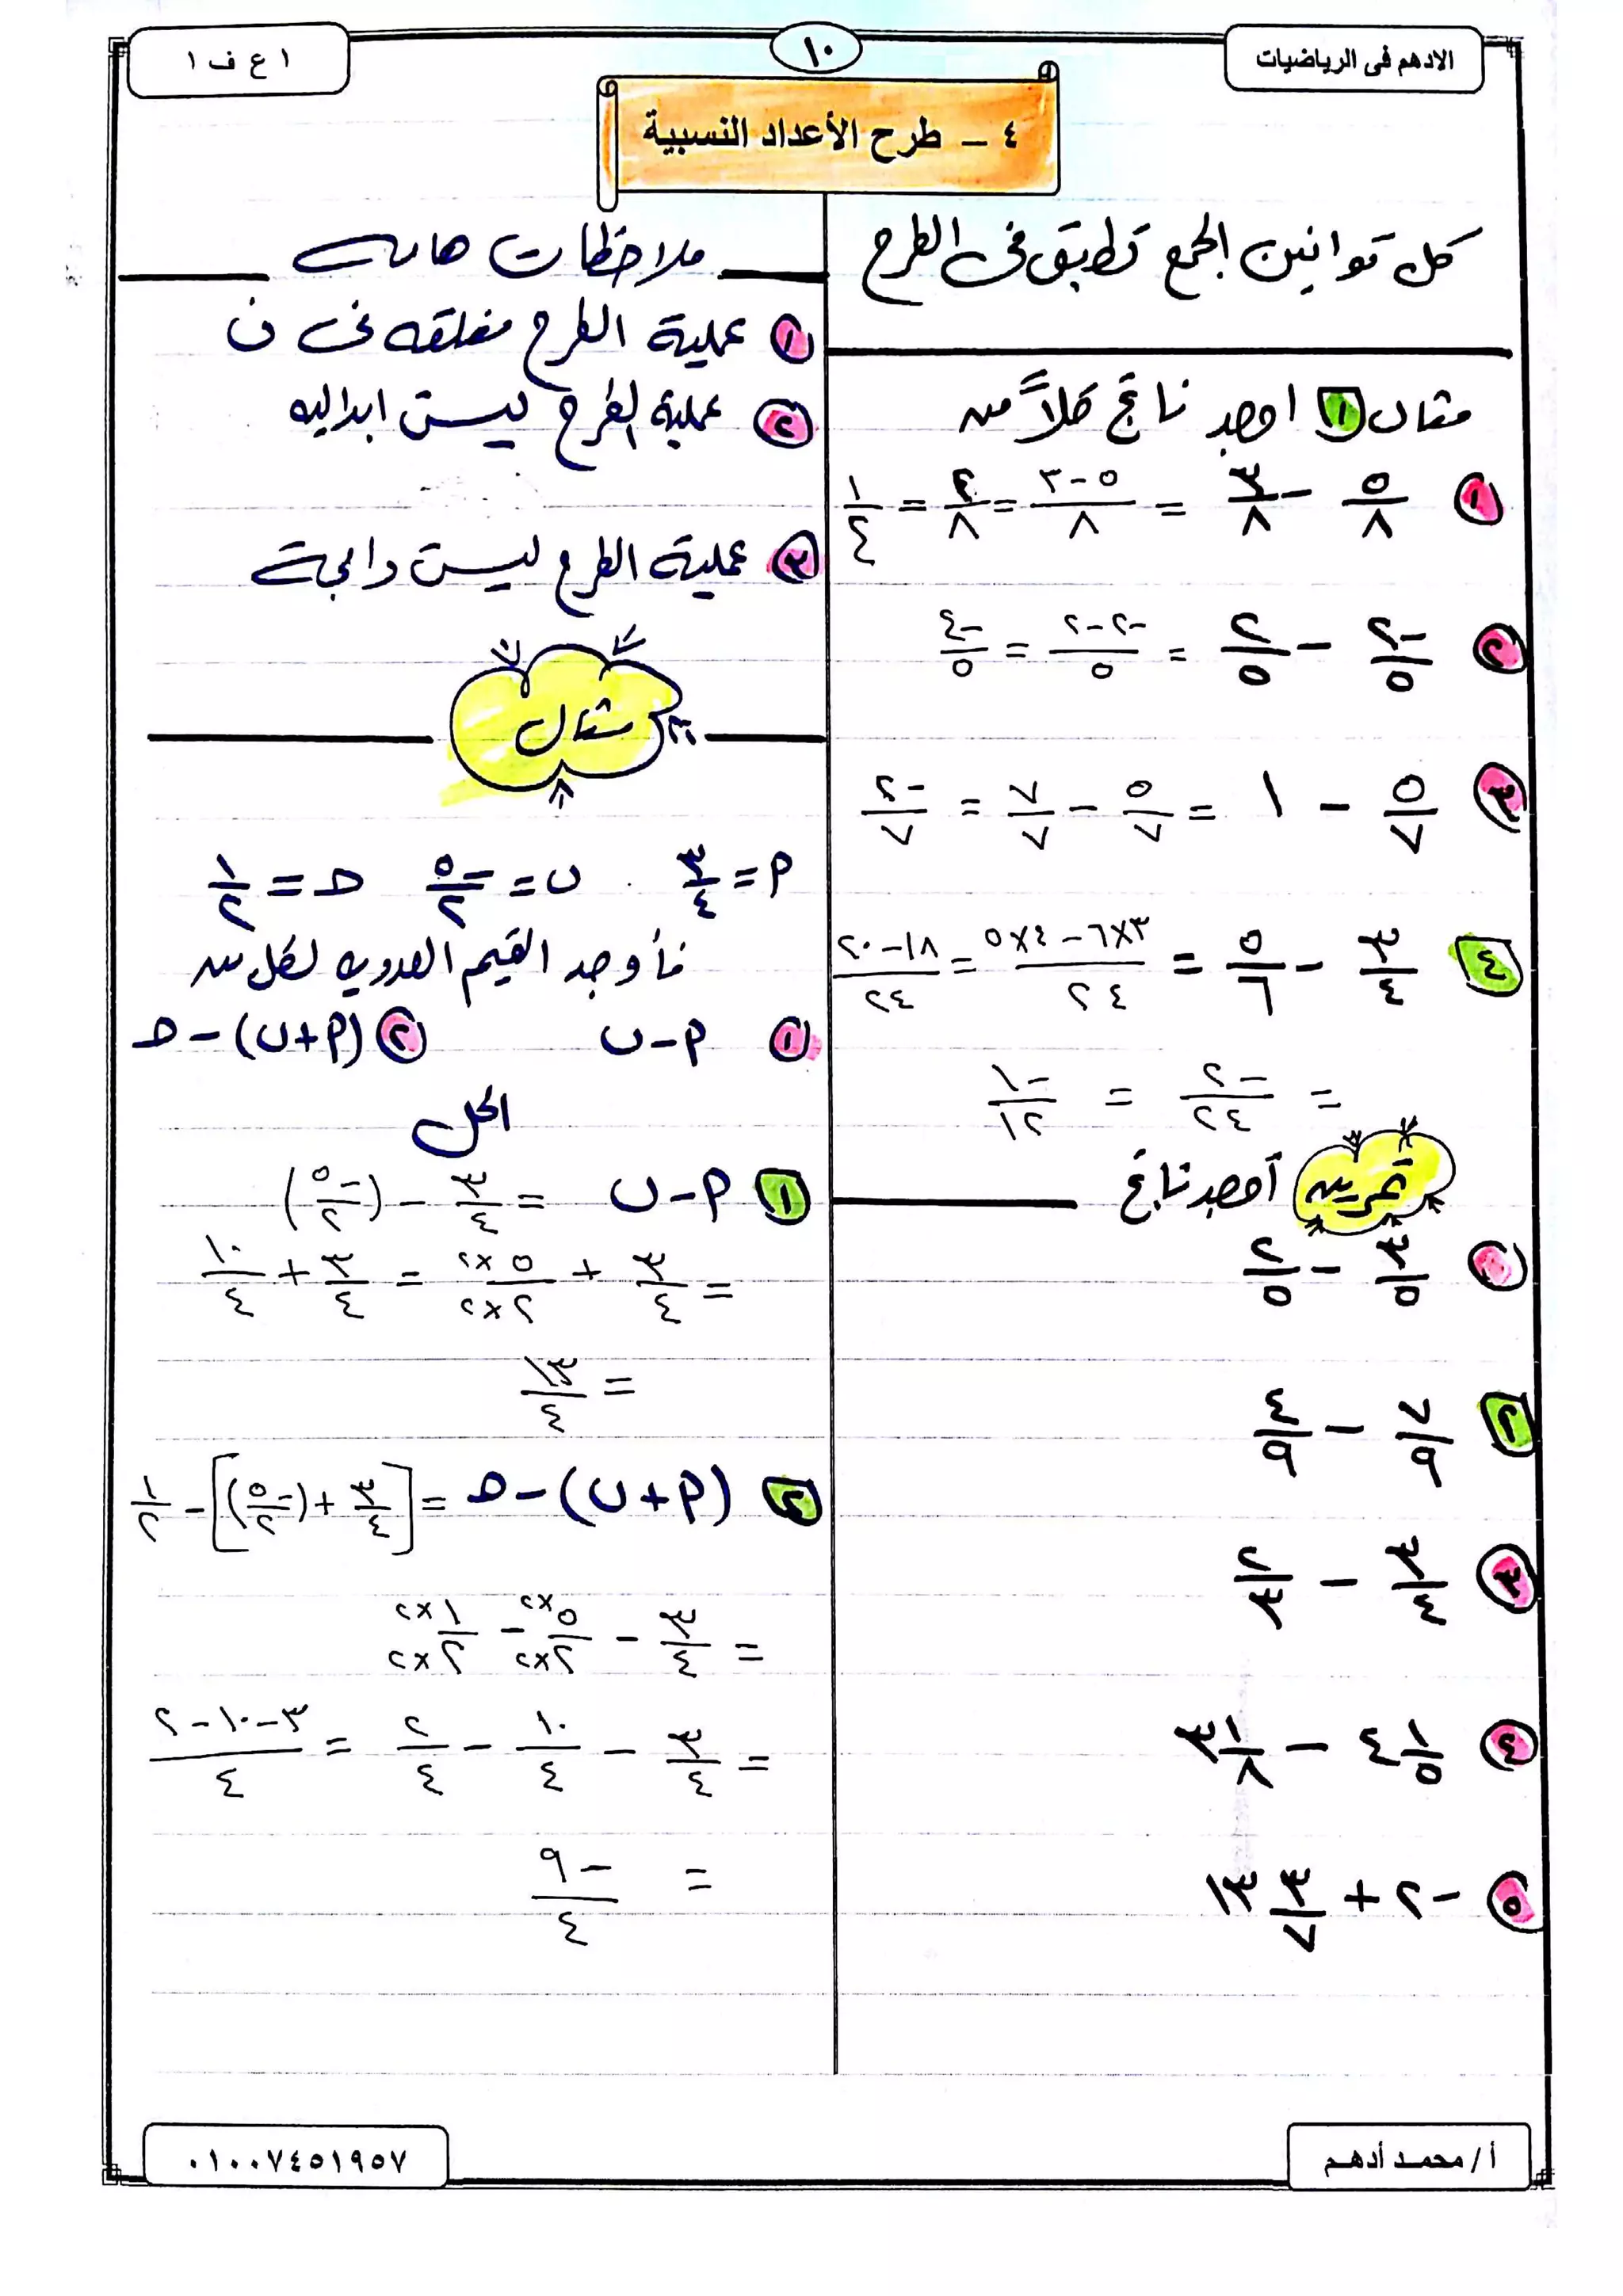 الادهم فى الرياضيات
١٠
١ ع ف ١
٤ – طرح الأعداد النسبية
كل قوانين الجمع تطبق فى الطرح
مثال ١ اوجد ناتج كلاً من
١ ٥/٨ - ٣/٨ = (٥-٣)/٨ = ٢/٨ = ١/٤
٢ -٢/٥ - ٢/٥ = (-٢-٢)/٥ = -٤/٥
٣ ٥/٧ - ١ = ٥/٧ - ٧/٧ = -٢/٧
٤ ٣/٤ - ٥/٦ = (٣×٦ - ٤×٥)/٢٤ = (١٨-٢٠)/٢٤
= -٢/٢٤ = -١/١٢
تمرين أوجد ناتج
١ ٣/٥ - ٢/٥
٢ ٧/٩ - ٤/٩
٣ ٣/٤ - ٢/٣
٤ ٤ ١/٥ - ٣ ١/٨
٥ -٢ + ٣/٧ ١٣
ملاحظات هامه
١ عملية الطرح مغلقه فى ن
٢ عملية الطرح ليست ابداليه
٣ عملية الطرح ليست دامجة
مثال
م = ٣/٤ ب = -٥/٢ ح = ١/٢
فأوجد القيم العدديه لكل من
١ م - ب ٢ (م + ب) - ح
الحل
١ م - ب = ٣/٤ - (-٥/٢)
= ٣/٤ + (٥×٢)/(٢×٢) = ٣/٤ + ١٠/٤
= ١٣/٤
٢ (م + ب) - ح = [٣/٤ + (-٥/٢)] - ١/٢
= ٣/٤ - (٥×٢)/(٢×٢) - (١×٢)/(٢×٢)
= ٣/٤ - ١٠/٤ - ٢/٤ = (٣-١٠-٢)/٤
= -٩/٤
أ / محمد أدهم
٠١٠٠٧٤٥١٩٥٧